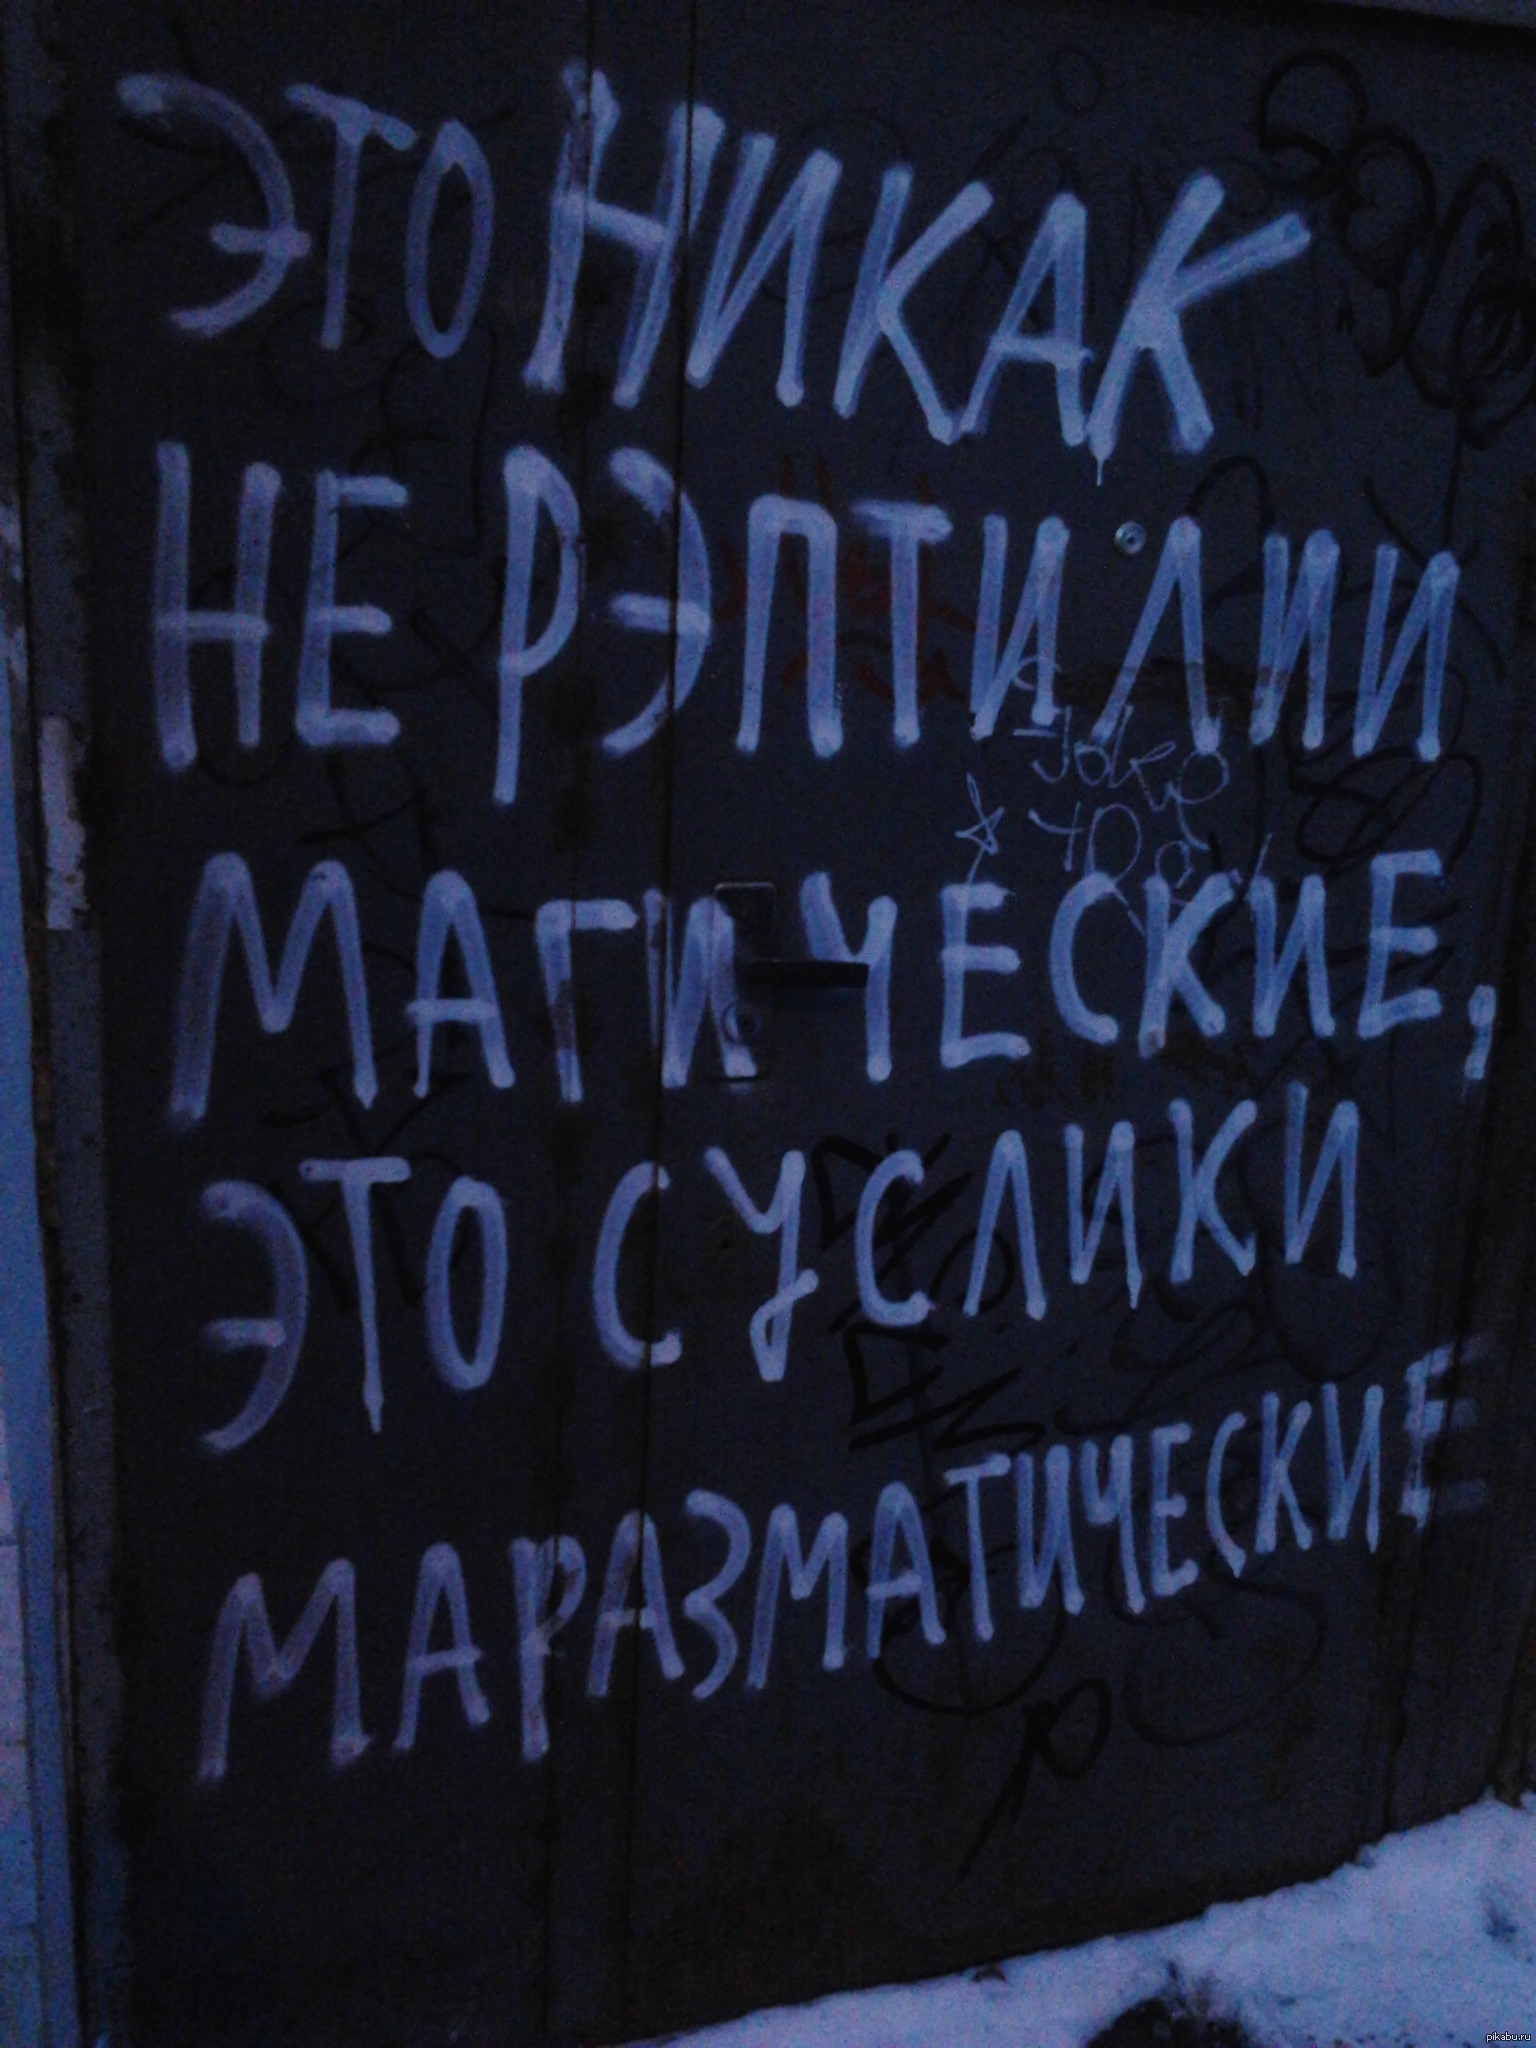 ЭТО НИКАК
НЕ РЭПТИЛИИ
МАГИЧЕСКИЕ,
ЭТО СУСЛИКИ
МАРАЗМАТИЧЕСКИЕ
pikabu.ru